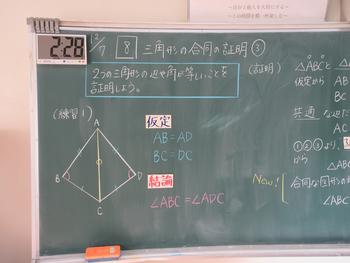 ~自分も他人を大切にする~
~この時間を精一杯楽しむ~
2:28
12/7 8 三角形の合同の証明③
2つの三角形の辺や角が等しいことを
証明しよう。
(練習1)
A
B
D
C
仮定
AB=AD
BC=DC
結論
∠ABC=∠ADC
(証明)
△ABCと
仮定から AB
BC
共通な辺だ
AC
①②③より、3
から △AB
New!
合同な図形の
∠AB